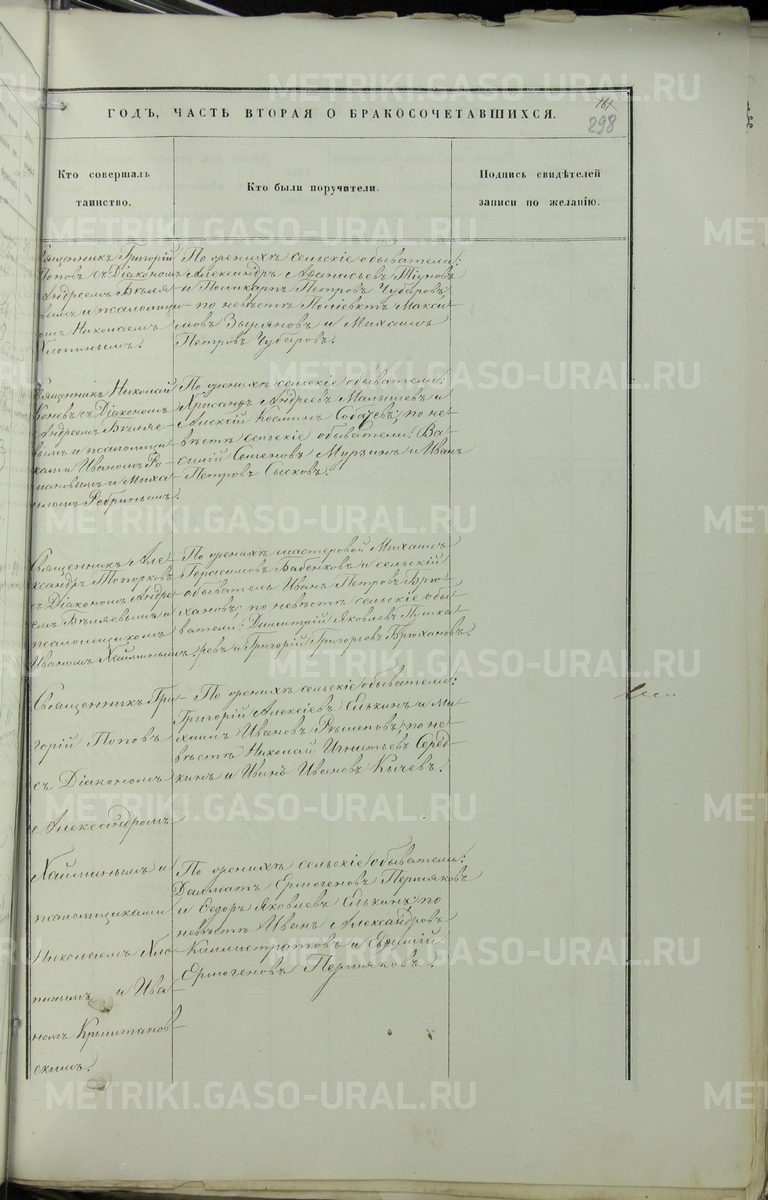 184
298
ГОДЪ, ЧАСТЬ ВТОРАЯ О БРАКОСОЧЕТАВШИХСЯ.
Кто совершалъ таинство.
Кто были поручители.
Подпись свидѣтелей записи по желанію.
Священникъ Григорій
Поповъ съ Діакономъ
Андреемъ Бѣляе-
вымъ и псаломщи-
комъ Николаемъ
Хлопинымъ.
По женихѣ сельскіе обыватели:
Александръ Аѳанасьевъ
и Поликарпъ Петровъ Чубаровъ;
по невѣстѣ Поліевктъ Макси-
мовъ Зыряновъ и Михаилъ
Петровъ Чубаровъ.
Священникъ Николай
Коневъ съ Діакономъ
Андреемъ Бѣляе-
вымъ и псаломщи-
ками Иваномъ Ро-
мановымъ и Миха-
иломъ Ребринымъ.
По женихѣ сельскіе обыватели:
Хрисанѳъ Андреевъ Малышевъ и
Алексій Косминъ; по не-
вѣстѣ сельскіе обыватели: Ва-
силій Семеновъ Мурзинъ и Иванъ
Петровъ Сысковъ.
Священникъ Але-
ксандръ Топорковъ
съ Діакономъ Андре-
емъ Бѣляевымъ и
псаломщикомъ
Иваномъ
По женихѣ мастеровой Михаилъ
Герасимовъ Бабенковъ и сельскій
обыватель Иванъ Петровъ Брю-
хановъ; по невѣстѣ сельскіе обы-
ватели: Димитрій Яковлевъ Пушка-
ревъ и Григорій Григорьевъ Брюхановъ.
Священникъ Гри-
горій Поповъ
съ Діакономъ
Александромъ
Хайминымъ и
псаломщиками
Николаемъ Хло-
пинымъ и Ива-
номъ Крыштанов-
скимъ.
По женихѣ сельскіе обыватели:
Григорій Алексіевъ Елькинъ и Ми-
хаилъ Ивановъ Рѣшетовъ; по не-
вѣстѣ Николай Игнатьевъ Серёд-
кинъ и Иванъ Ивановъ Кычевъ.
По женихѣ сельскіе обыватели:
Далматъ Ермогеновъ Пермяковъ
и Ѳедоръ Яковлевъ Елькинъ; по
невѣстѣ Иванъ Александровъ
Каллистратовъ и Евѳимій
Ермогеновъ Пермяковъ.
METRIKI.GASO-URAL.RU